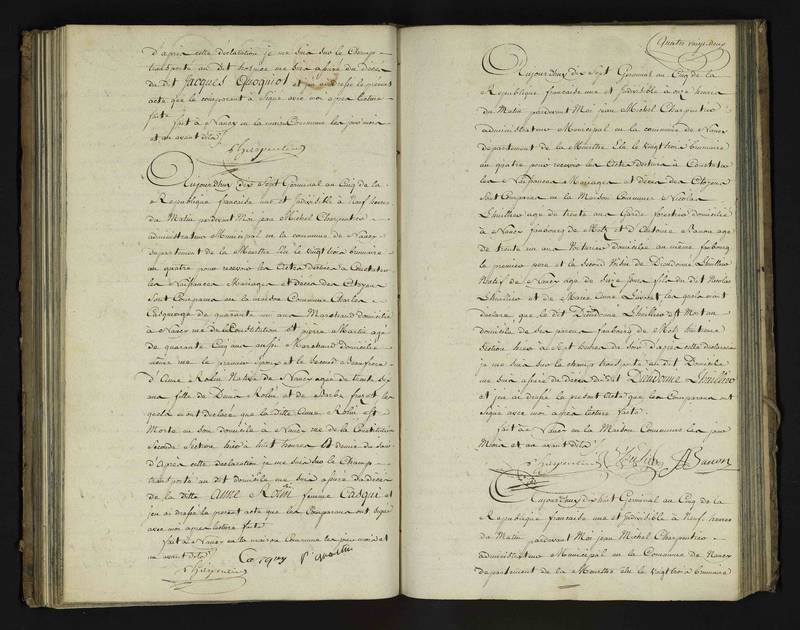 d'après cette déclaration je me suis sur le Champ
transporté au dit
du dit Jacques Quoqniot et j'ai dressé le présent
acte que le comparant a Signé avec moi après lecture
faite
fait à Nancy en la maison Commune les jour mois
et an avant dits
Charpentier
Aujourdhuy dix Sept Germinal an Cinq de la
République française une et Indivisible à Neuf heures
du Matin pardevant Moi jean Michel Charpentier
administrateur Municipal en la commune de Nancy
département de la Meurthe Elu le vingt trois brumaire
an quatre pour recevoir les Actes destinés à Constater
les Naissances Mariages et décès des Citoyens
Sont Comparus en la maison Commune Charles
Casquay de quarante un ans Marchand domicilié
à Nancy rue de la Constitution et pierre Martin agé
de quarante Cinq ans aussi Marchand domicilié
même rue le premier époux et le Second Beaufrere
d'Anne Rolin Native de Nancy agée de trente Six
ans fille de Rolin et de Barbe les
quels ont déclaré que la ditte Anne Rolin est
Morte en son domicile à Nancy rue de la Constitution
Seconde Section hier à huit heures et demie du Soir
d'après cette déclaration je me suis sur le Champ
transporté au dit domicile me suis assuré du décès
de la ditte Anne Rolin femme Casque et
jen ai dressé le present acte que les Comparans ont signé
avec moi après lecture faite
fait à Nancy en la maison Commune les jour mois et
an avant dits
Charpentier
Casquay P. Martin
Quatre vingt deux
Aujourdhuy dix Sept Germinal an Cinq de la
République française une et Indivisible à onze heures
du Matin pardevant Moi jean Michel Charpentier
administrateur Municipal en la commune de Nancy
département de la Meurthe Elu le vingt trois brumaire
an quatre pour recevoir les Actes destinés à Constater
les Naissances Mariages et décès des Citoyens
Sont Comparus en la Maison Commune Nicolas
Lhuillier agé de trente ans Garde forestier domicilié
à Nancy fauxbourg de Metz et d'Antoine Banon agé
de trente un ans domicilié au même fauxbourg
le premier père et le Second de Dieudonné Lhuillier
Natif de Nancy agé de Seize jours fils du dit Nicolas
Lhuillier et de Marie Anne les quels ont
déclaré que le dit Dieudonné Lhuillier est Mort au
domicile de ses pere fauxbourg de Metz huitieme
Section hier à Sept heures du Soir d'après cette déclaration
je me suis sur le champ transporté au dit Domicile
me suis assuré du décès du dit Dieudonné Lhuillier
et jen ai dressé le present Acte que les Comparans ont
Signé avec moi après lecture faite
fait à Nancy en la Maison Commune les jour
Mois et an avant dits
Charpentier Lhuillier A Banon
Aujourdhuy dix huit Germinal an Cinq de la
République française une et Indivisible à Neuf heures
du Matin pardevant Moi jean Michel Charpentier
administrateur Municipal en la Commune de Nancy
département de la Meurthe Elu le vingt trois brumaire